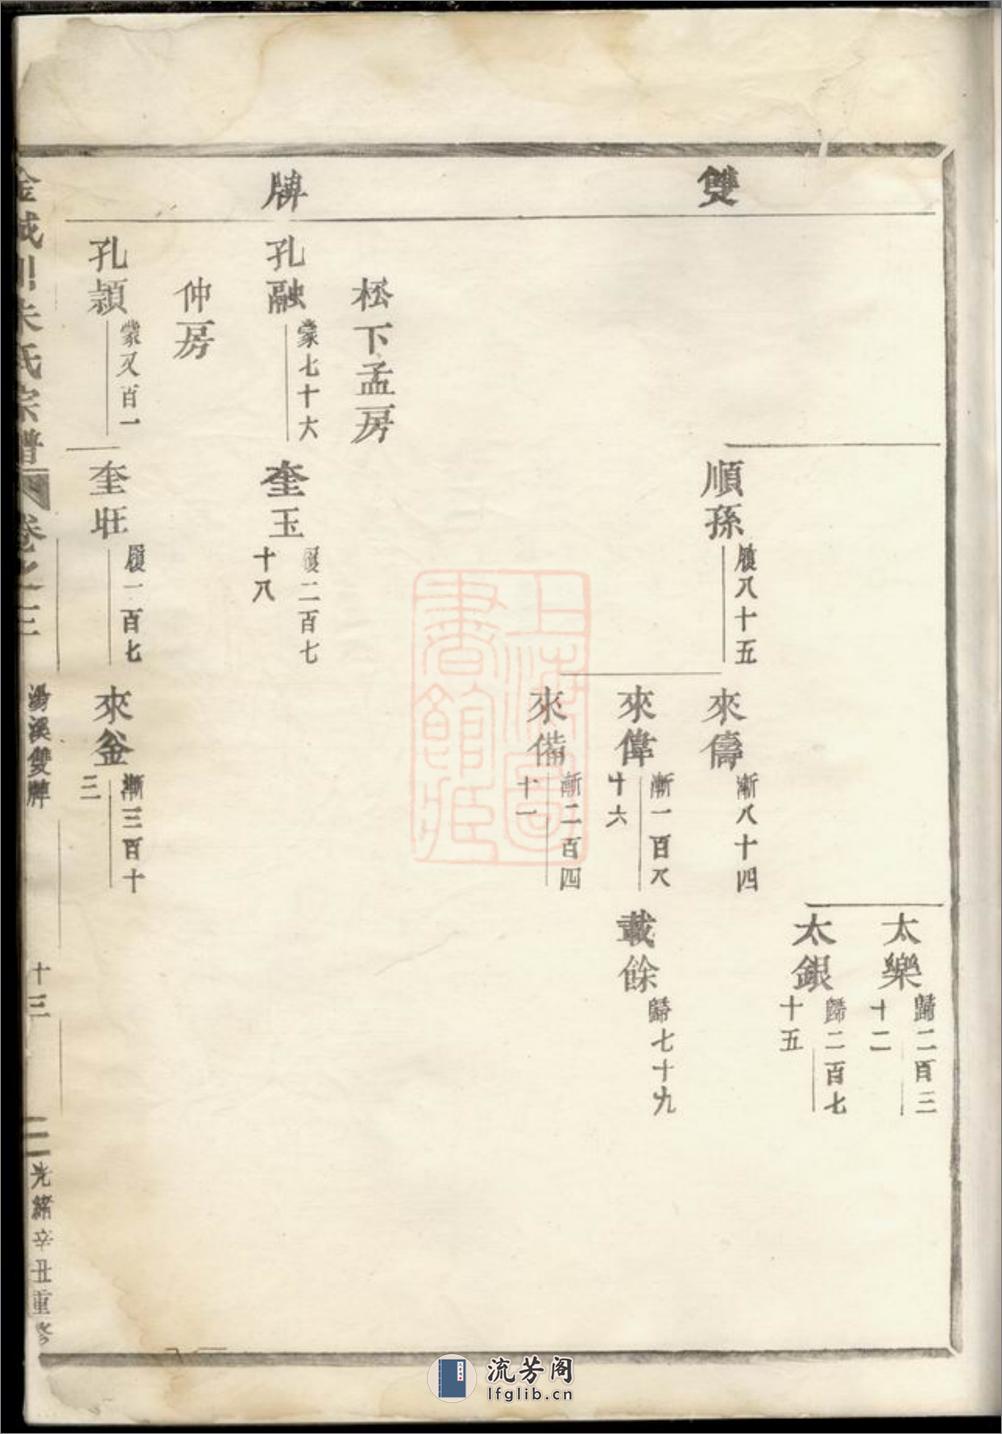 雙
牌
太樂
歸二百三
十二
太銀
歸二百七
十五
順孫
履八十五
來儔
漸八十四
來偉
漸一百八
十六
載餘
歸七十九
來備
漸二百四
十一
松下孟房
孔融
蒙七十六
奎玉
履二百七
十八
仲房
孔潁
蒙又百一
奎旺
履一百七
來釜
漸三百十
三
朱氏宗譜
卷之三
湯溪雙牌
十三
光緒辛丑重修
上海圖書館藏
流芳阁
lfglib.cn